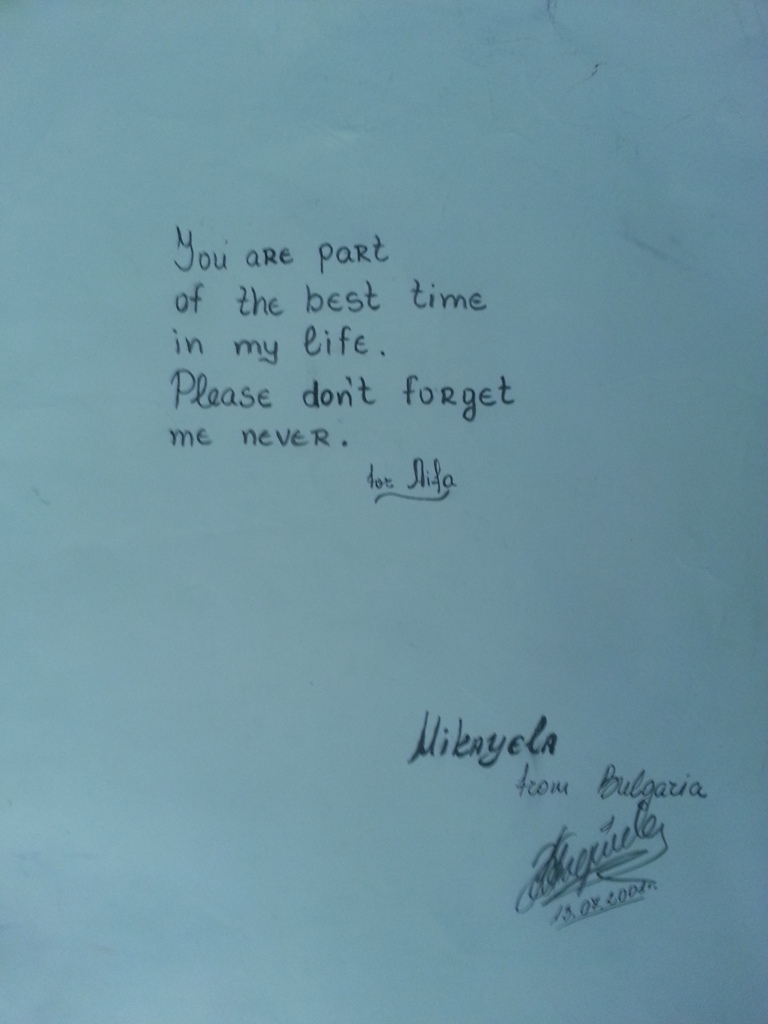 You are part
of the best time
in my life.
Please don't forget
me never.
for
Mikayela
from Bulgaria